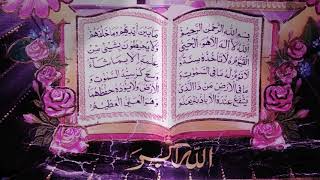 بِسْمِ اللهِ الرَّحْمٰنِ الرَّحِيْمِ
اَللهُ لَا اِلٰهَ اِلَّا هُوَ الْحَيُّ
الْقَيُّوْمُ لَا تَاْخُذُهُ سِنَةٌ
وَلَا نَوْمٌ لَهُ مَا فِى السَّمٰوٰتِ
وَمَا فِى الْاَرْضِ مَنْ ذَا الَّذِىْ
يَشْفَعُ عِنْدَهُ اِلَّا بِاِذْنِهِ يَعْلَمُ
مَا بَيْنَ اَيْدِيْهِمْ وَمَا خَلْفَهُمْ
وَلَا يُحِيْطُوْنَ بِشَىْءٍ مِّنْ
عِلْمِهِ اِلَّا بِمَا شَاءَ
وَسِعَ كُرْسِيُّهُ السَّمٰوٰتِ
وَالْاَرْضَ وَلَا يَؤُدُهُ حِفْظُهُمَا
وَهُوَ الْعَلِىُّ الْعَظِيْمُ
الله اكبر